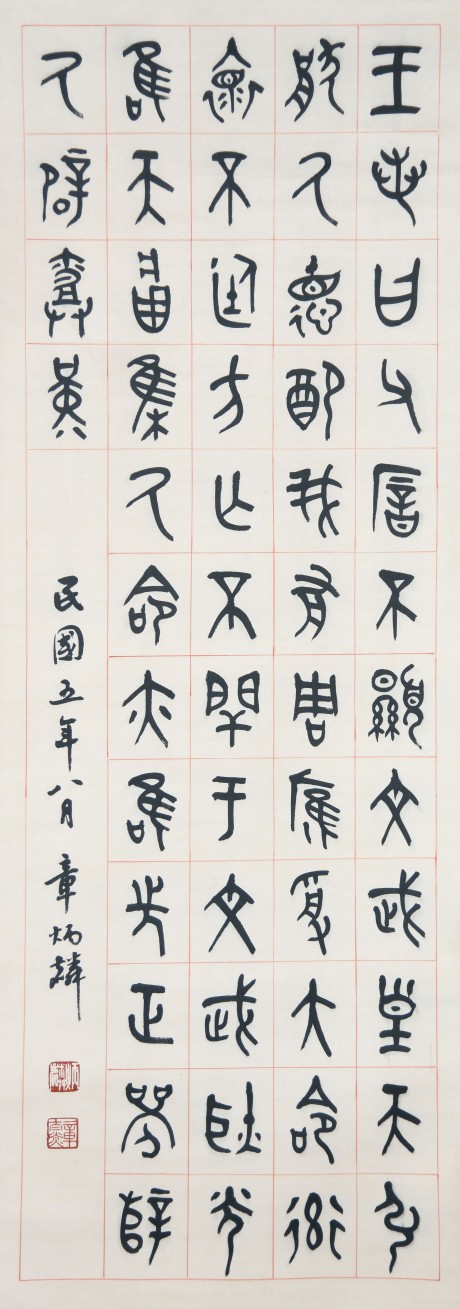 王若曰父厝不顯文武皇天弘
猒厥德配我有周膺受大命率
懷不廷方亡不閈于文武耿光
唯天將集厥命亦唯先正襄辥
厥辟勞堇
民國五年八月 章炳麟
炳麟
章太炎